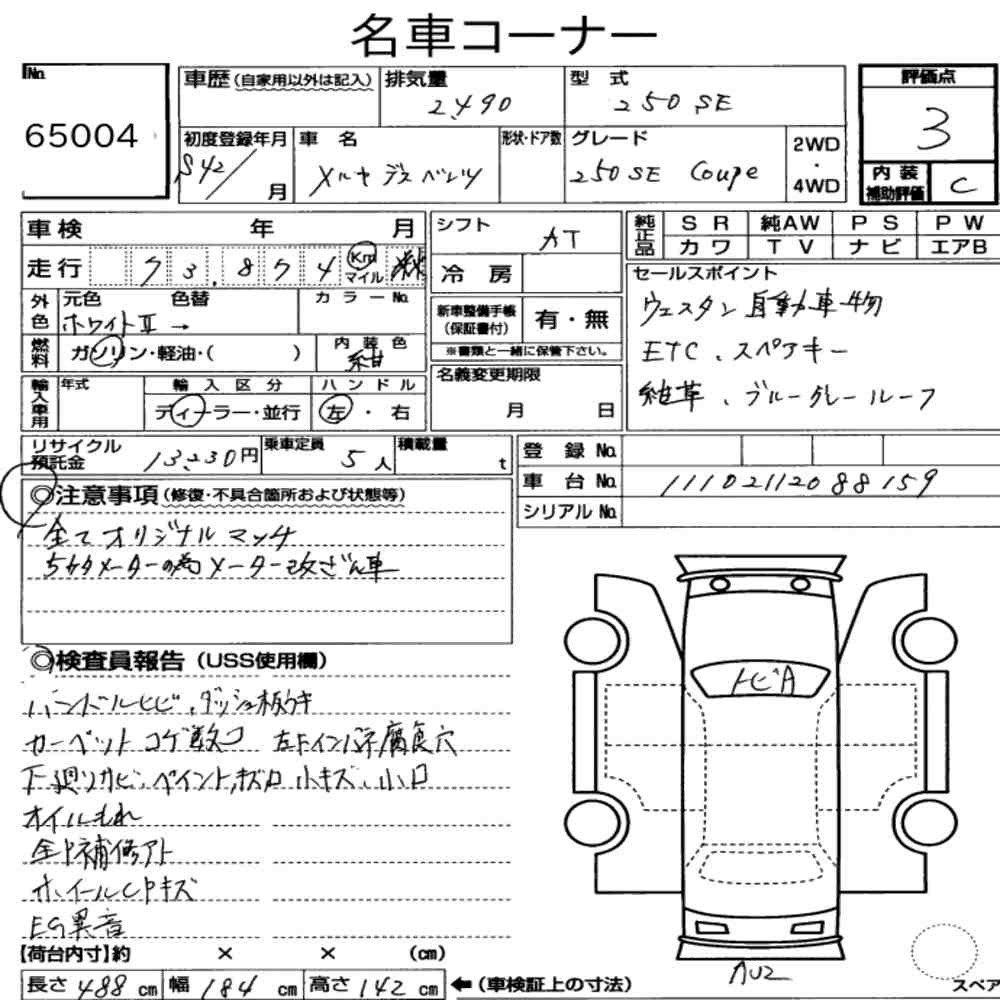 名車コーナー
No. 65004
車歴(自家用以外は記入) 排気量 2490 型式 250 SE 評価点 3
初度登録年月 S42/ 月 車名 メルセデスベンツ 形状・ドア数 グレード 250SE Coupe 2WD・4WD 内装補助評価 C
車検 年 月 シフト AT 純正品 SR 純AW PS PW
カワ TV ナビ エアB
走行 73,874 Km マイル 冷房
セールスポイント
外色 元色 色替 カラーNo.
ホワイトⅡ →
新車整備手帳(保証書付) 有・無
※書類と一緒に保管下さい。
ウェスタン自動車物
ETC、スペアキー
紺革、ブルーグレールーフ
燃料 ガソリン・軽油・( ) 内装色 紺
輸入車用 年式 輸入区分 ハンドル
ディーラー・並行 左・右
名義変更期限
月 日
リサイクル預託金 13,230円 乗車定員 5人 積載量 t
登録No.
車台No. 11102112088159
シリアルNo.
◎注意事項(修復・不具合箇所および状態等)
全てオリジナルマッチ
5ケタメーターの為メーター改ざん車
◎検査員報告(USS使用欄)
ハンドルヒビ、ダッシュ板ウキ
カーペットコゲ数コ 左Fインパネ腐食穴
下廻りサビ、ペイント、キズ 小キズ、小凹
オイルもれ
全P補修アト
ホイールCPキズ
EG異音
トビA
AU2
【荷台内寸】約 × × (cm)
長さ 488 cm 幅 184 cm 高さ 142 cm ←(車検証上の寸法)
スペア